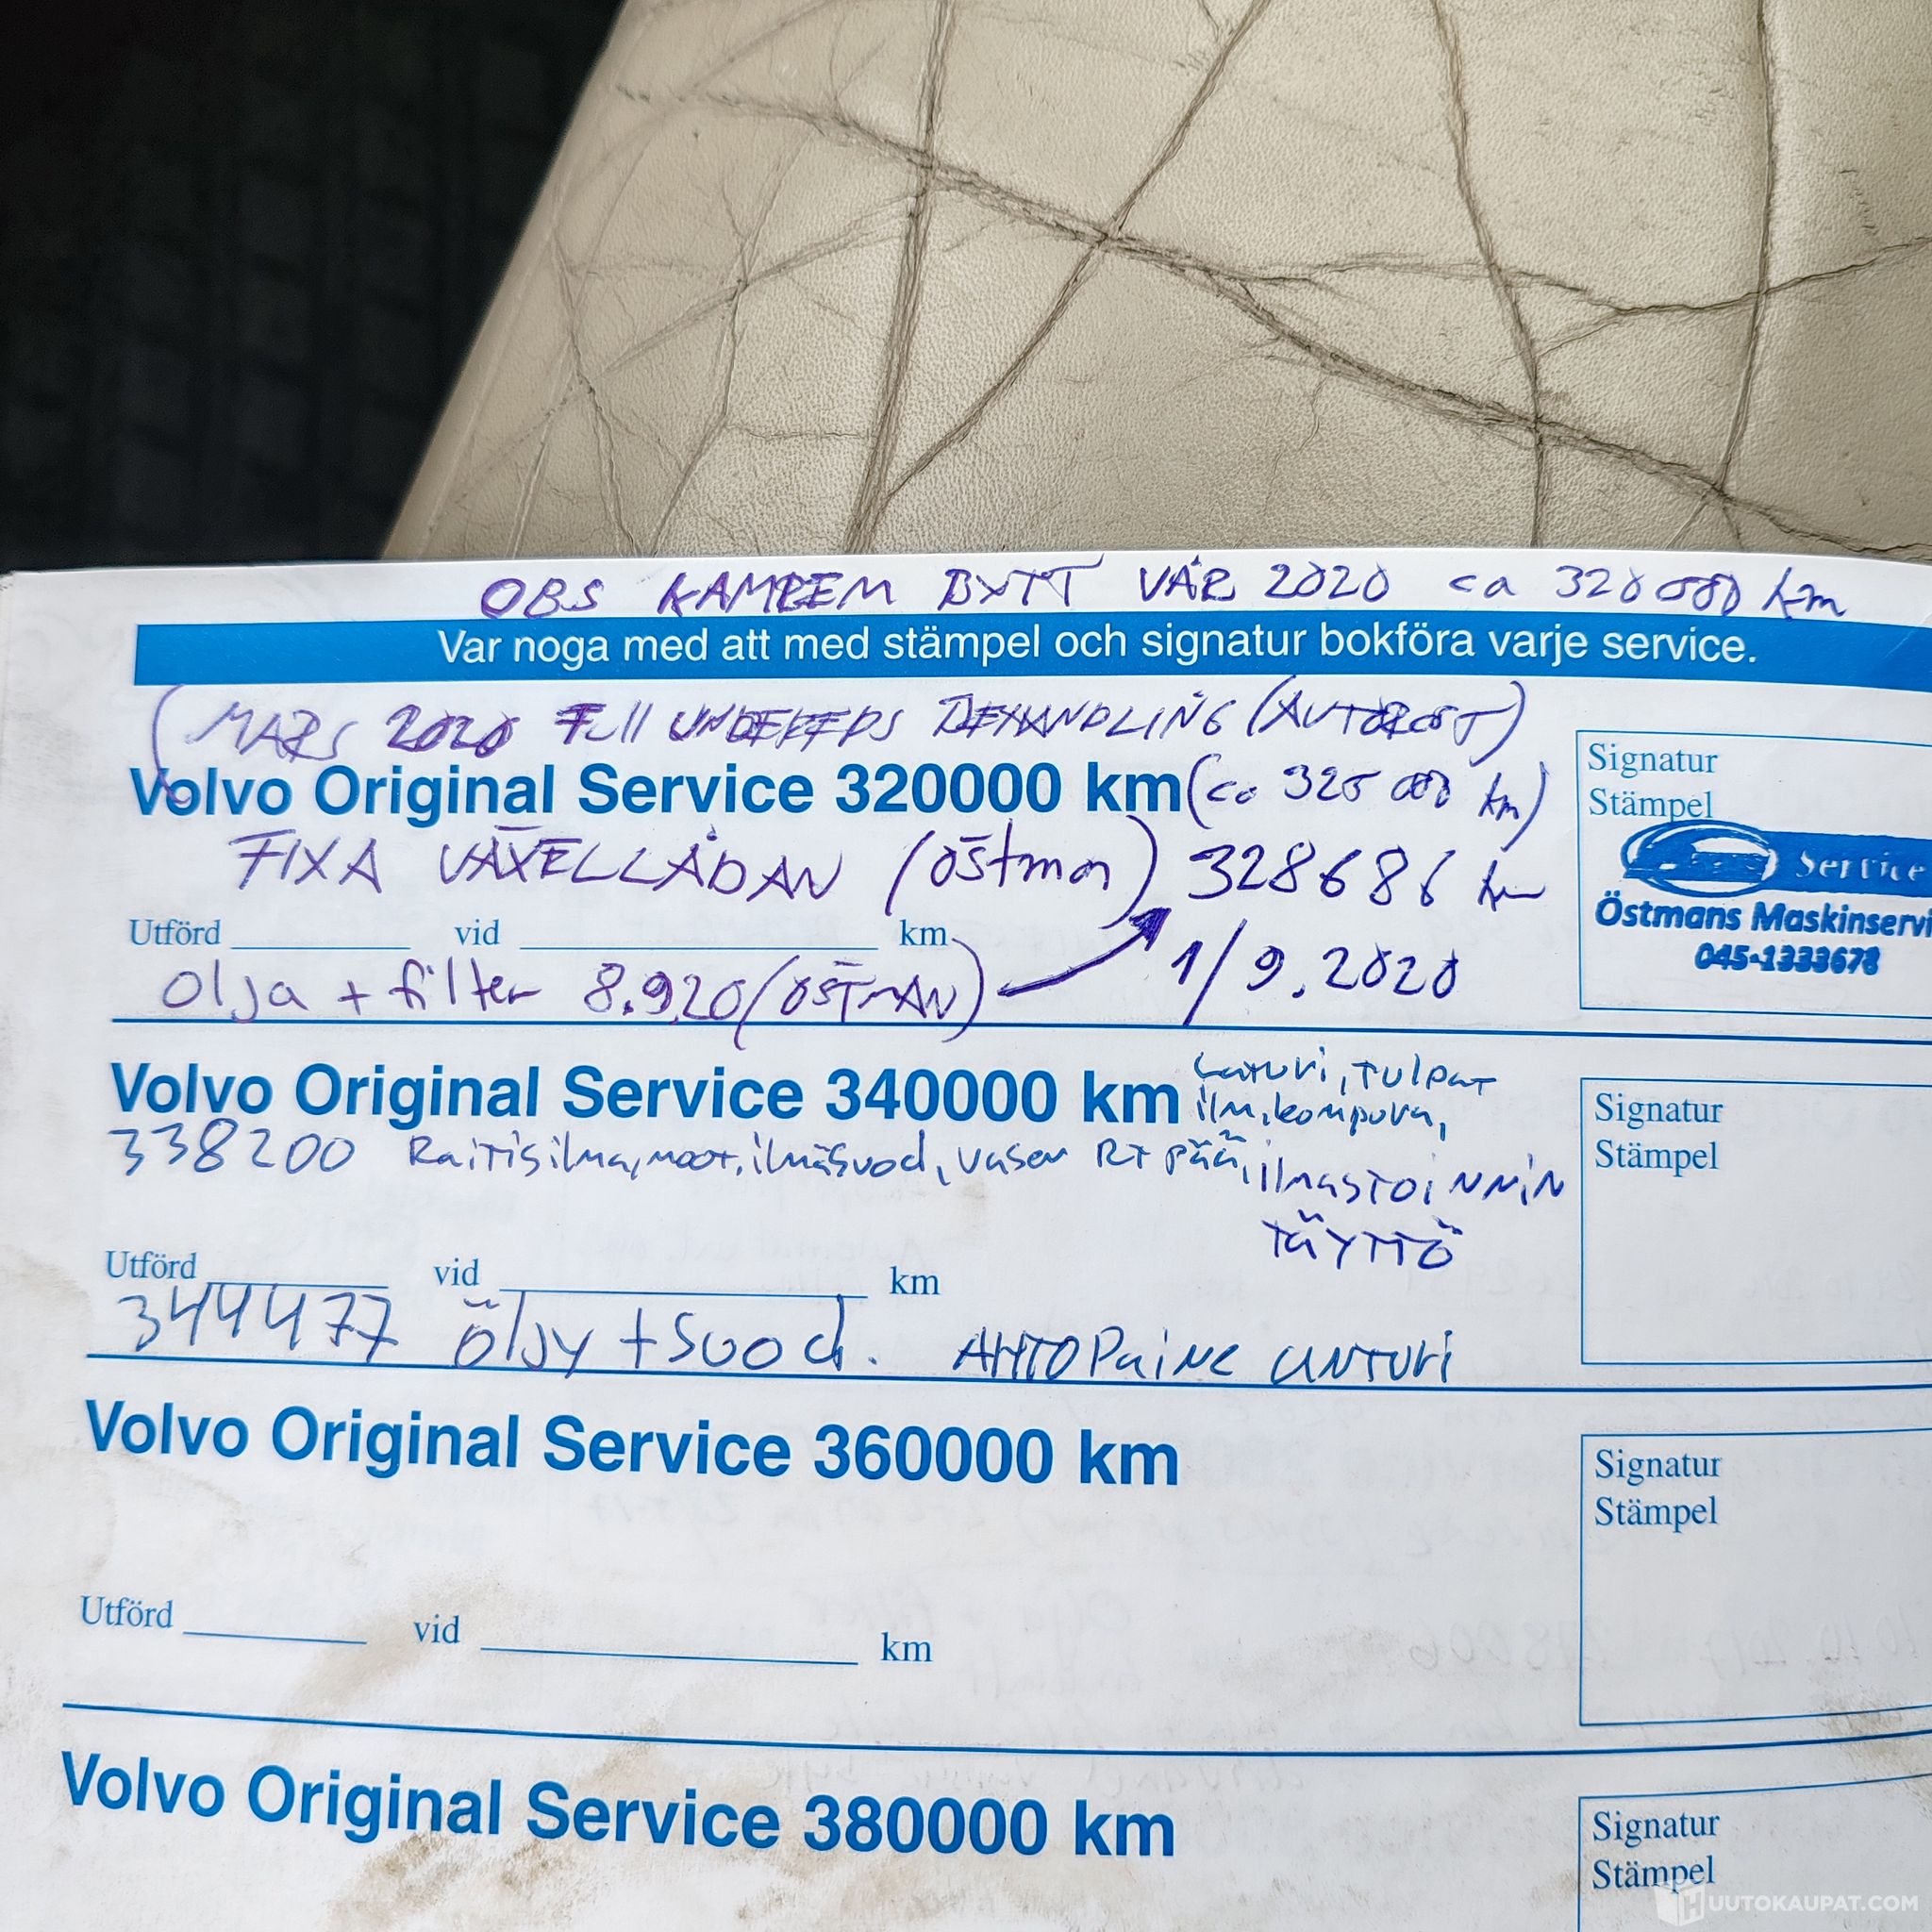 OBS KAMREM BYTT VÅR 2020 ca 320 000 km
Var noga med att med stämpel och signatur bokföra varje service.
(MARS 2020 Full UNDERREDS BEHANDLING (AUTOROST)
Volvo Original Service 320000 km (ca 325 000 km)
Signatur
Stämpel
FIXA VÄXELLÅDAN (ÖSTMAN) 328686 km
Service
Östmans Maskinservi
045-1333678
Utförd vid km
1/9.2020
Olja + filter 8.9.20 (ÖSTMAN)
Volvo Original Service 340000 km
Laturi, Tulpat
ilm.kompura,
Signatur
Stämpel
338200 Raitisilma,moot,ilmäsuod, vasen RT pää, ilmastoinnin
täyttö
Utförd vid km
344477 öljy + suod. AHTOPaine anturi
Volvo Original Service 360000 km
Signatur
Stämpel
Utförd vid km
Volvo Original Service 380000 km
Signatur
Stämpel
HUUTOKAUPAT.COM